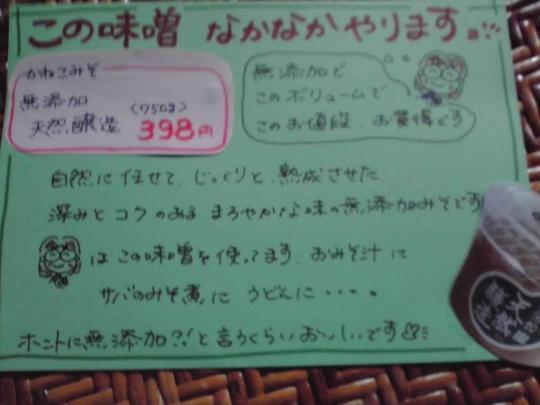 この味噌 なかなかやります
かねこみそ
無添加 (750g)
天然醸造 398円
無添加で
このボリュームで
このお値段、お買得です
自然に任せて、じっくりと、熟成させた
深みとコクのある まろやかな味の無添加みそです
はこの味噌を使ってます、おみそ汁に
サバのみそ煮に うどんに・・・・
ホントに無添加?!と言うくらいおいしいです